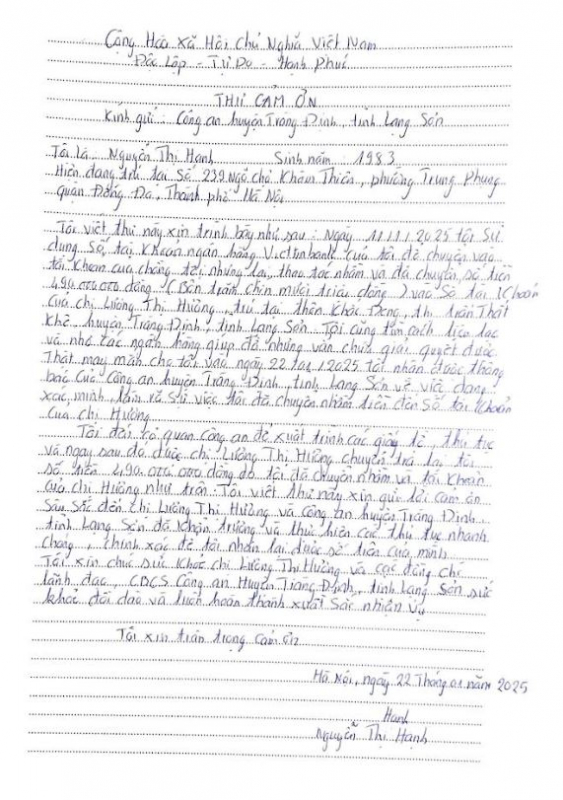 Cộng Hoà Xã Hội Chủ Nghĩa Việt Nam
Độc Lập - Tự Do - Hạnh Phúc
THƯ CẢM ƠN
Kính gửi: Công an huyện Tràng Định, tỉnh Lạng Sơn
Tôi là: Nguyễn Thị Hạnh Sinh năm: 1983
Hiện đang trú tại Số 239 Ngõ chợ Khâm Thiên, phường Trung Phụng
quận Đống Đa, Thành phố Hà Nội
Tôi viết thư này xin trình bày như sau: Ngày 11/1/2025 tôi sử
dụng số tài khoản ngân hàng Viettinbank của tôi để chuyển vào
tài khoản của chồng tôi nhưng lại thao tác nhầm và đã chuyển số tiền
490.000.000 đồng (Bốn trăm chín mươi triệu đồng) vào số tài khoản
của chị Lương Thị Hường, trú tại thôn Khắc Đeng, thị trấn Thất
Khê, huyện Tràng Định, tỉnh Lạng Sơn. Tôi cũng tìm cách liên lạc
và nhờ các ngân hàng giúp đỡ nhưng vẫn chưa giải quyết được
Thật may mắn cho tôi vào ngày 22/01/2025 tôi nhận được thông
báo của Công an huyện Tràng Định, tỉnh Lạng Sơn về việc đang
xác minh làm rõ sự việc tôi đã chuyển nhầm tiền đến số tài khoản
của chị Hường
Tôi đến cơ quan công an để xuất trình các giấy tờ, thủ tục
và ngay sau đó được chị Lương Thị Hường chuyển trả lại tôi
số tiền 490.000.000 đồng do tôi đã chuyển nhầm vào tài khoản
của chị Hường như trên. Tôi viết thư này xin gửi lời cảm ơn
sâu sắc đến chị Lương Thị Hường và công an huyện Tràng Định,
tỉnh Lạng Sơn đã khẩn trương và thực hiện các thủ tục nhanh
chóng, chính xác để tôi nhận lại được số tiền của mình
Tôi xin chúc sức khoẻ chị Lương Thị Hường và các đồng chí
lãnh đạo, CBCS Công an Huyện Tràng Định, tỉnh Lạng Sơn sức
khoẻ dồi dào và luôn hoàn thành xuất sắc nhiệm vụ
Tôi xin trân trọng cảm ơn
Hà Nội, ngày 22 Tháng 01 năm 2025
Hạnh
Nguyễn Thị Hạnh